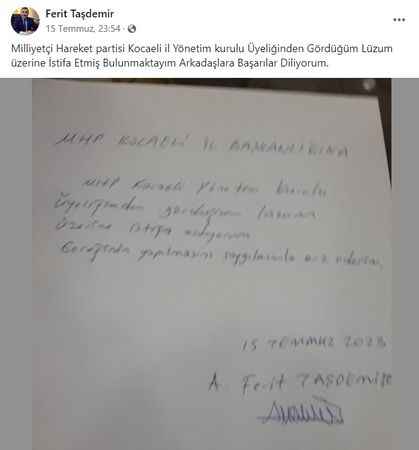 Ferit Taşdemir
15 Temmuz, 23:54 ·
Milliyetçi Hareket partisi Kocaeli il Yönetim kurulu Üyeliğinden Gördüğüm Lüzum
üzerine İstifa Etmiş Bulunmaktayım Arkadaşlara Başarılar Diliyorum.
MHP KOCAELİ İL BAŞKANLIĞINA
MHP Kocaeli Yönetim kurulu
Üyeliğinden gördüğüm lüzum
Üzerine istifa ediyorum
Gereğinin yapılmasını saygılarımla arz ederim,
15 TEMMUZ 2023
A. Ferit TAŞDEMİR